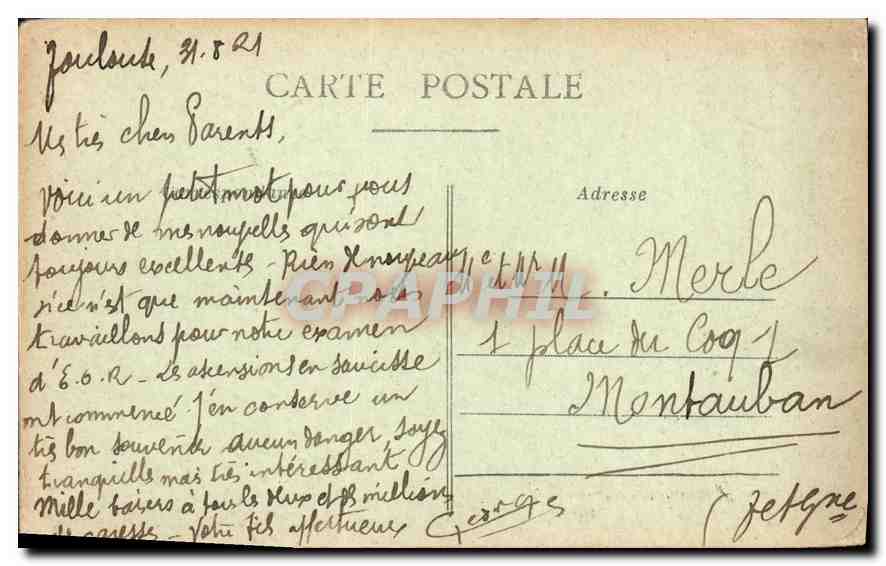 Toulouse, 31.8.21
CARTE POSTALE
Mes très chers Parents,
Voici un petit mot pour vous
donner de mes nouvelles qui sont
toujours excellentes - Rien de nouveau
si ce n'est que maintenant nous
travaillons pour notre examen
d'E.O.R - Les ascensions en saucisse
ont commencé. J'en conserve un
très bon souvenir aucun danger, soyez
tranquilles mais très intéressant
Mille baisers à tous les deux et des millions
de caresses - Votre fils affectueux Georges
Adresse
Me et Mr M. Merle
1 place du Coq 1
Montauban
(T et Gne
CPAPHIL